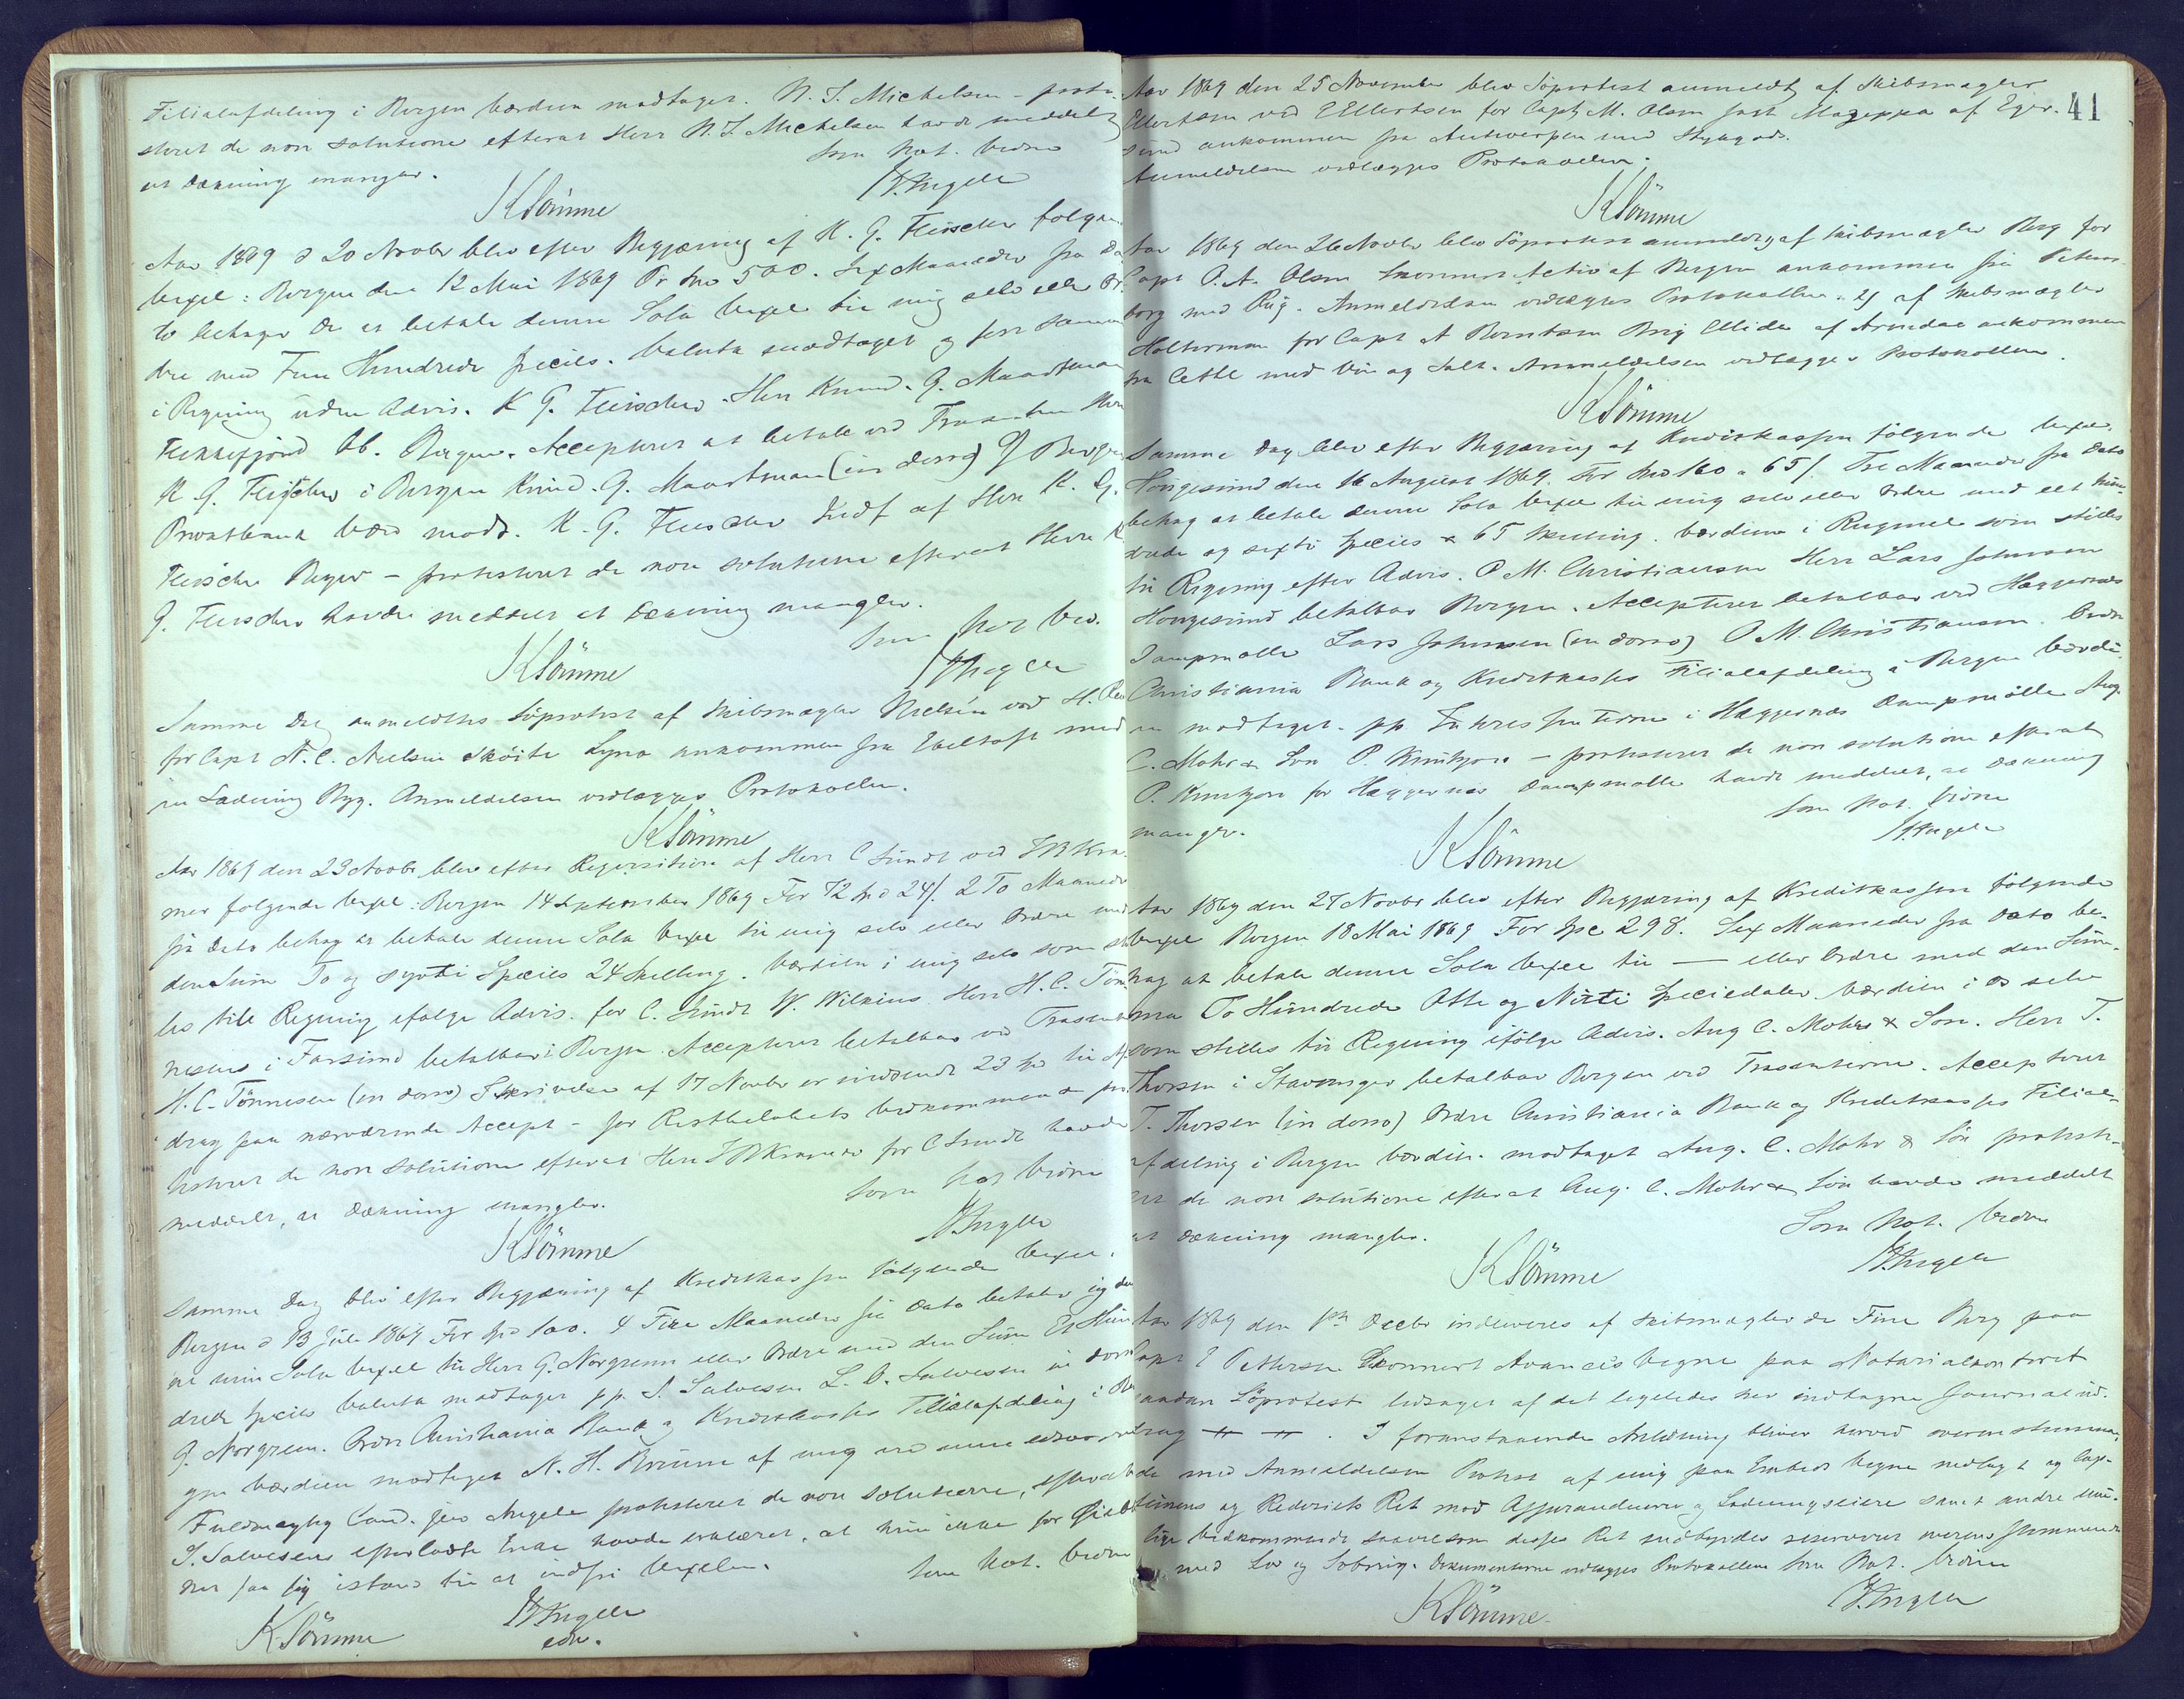 Filialafdeling i Bergen Værdien modtaget. N. J. Michelsen - prote-
steret de non solutione efterat Herr N. J. Michelsen havde meddelt
at Dækning mangler. Som Not. Vidne
KSömme JAngell
Aar 1869 d 20 Novbr blev efter Begjæring af K. G. Fleischer følgen
Vexel: Bergen den 12 Mai 1869 Pr Spd 500. Sex Maaneder fra Da
to behager De at betale denne Sola Vexel til mig selv eller Or
dre med Fem Hundrede Species. Valuta modtaget og
i Regning uden Advis. K G. Fleischer. Herr Knud. G. Maartman
Flekkefjord bt. Bergen. Accepteret at betale ved Trasenten Herr
K. G. Fleischer i Bergen Knud. G. Maartman (in dorso) Bergen
Privatbank Værd modt. K. G. Fleischer Indf af Herr K. G.
Fleischer Bergen - protesteret de non solutione efterat Herr K
G. Fleischer havde meddelt at Dækning mangler.
Som Not Vid.
KSömme JAngell
Samme Dag anmeldtes Söprotest af Skibsmægler Nielsen ved H.
for Capt N. C. Nielsen Sköite Lyna ankommen fra Ebeltoft med
en Ladning Byg. Anmeldelsen vedlægges Protokollen.
KSömme
Aar 1869 den 23 Novbr blev efter Reqvisition af Herr C Sundt ved JB Kra-
mer folgende Vexel: Bergen 14 September 1869 For 72 Spd 24/. 2 To Maaneder
fra Dato behag at betale denne Sola Vexel til mig selv eller Ordre med
den Sum To og Sytti Species 24 Skilling. Værdien i mig selv som stil
les till Regning ifølge Advis. for C. Sundt W. Wilkins Herr H. C. Tön-
nesen i Farsund betalbar i Bergen. Accepteret betalbar ved Trasent
H. C. Tönnesen (in dorso) Skrivelse af 17 Novbr er indsendt 23 Spd til Af
drag paa nærværende Accept - for Restbelobets Vedkommende pro
testeret de non solutione efterat Herr J B Kramer for C Sundt havde
meddelt, at Dækning mangler. Som Not Vidne
KSömme JAngell
Samme Dag blev efter Begjæring af Kreditkassen følgende Vexel.
Bergen d 13 Juli 1869 For Spd 100. 4 Fire Maaneder fra Dato betaler jeg den
ne min Sola Vexel til Herr G. Norgreen eller Ordre med den Sum Et Hun
drede Species Valuta modtaget pp. J. Salvesen L. O. Salvesen in dorso
G. Norgreen. Ordre Christiania Bank og Kreditkasses Filialafdeling i Ber
gen Værdien modtaget N. H. Bruun af mig ved min edsvorne
Fuldmægtig Cand. jur Angell protesteret de non solutione, efterat
J. Salvesens efterladte Enke havde erklæret, at hun ikke for Øieblik
ket saa sig istand til at indfri Vexelen. Som Not. Vidne
KSömme JAngell
edsv.
41
Aar 1869 den 25 November blev Söprotest anmeldt af Skibsmægler
Ellertsen ved E Ellertsen for Capt M. Olsen Jagt Mazeppa af Eger-
sund ankommen fra Antwerpen med Stykgods.
Anmeldelsen vedlægges Protokollen.
KSömme
Aar 1869 den 26 Novbr blev Söprotest anmeldt af Skibsmægler Berg for
Capt O. A. Olsen Skonnert Activ af Bergen ankommen fra Peters-
borg med Rug. Anmeldelsen vedlægges Protokollen. 2) af Skibsmægler
Holterman for Capt A Berntsen Brig Ellida af Arendal ankommen
fra Cette med Vin og Salt. Anmeldelsen vedlægges Protokollen.
KSömme
Samme Dag blev efter Begjæring af Kreditkassen følgende Vexel.
Hougesund den 16 August 1869. For Spd 160 " 65/. Tre Maaneder fra Dato
behag at betale denne Sola Vexel til mig selv eller Ordre med ett Hun-
drede og sexti Species & 65 Skilling. Værdien i Rugmel som stilles
til Regning efter Advis. P M. Christiansen Herr Lars Johnsen
Hougesund betalbar Bergen. Accepteret betalbar ved Hæggernæs
Dampmølle Lars Johnsen (in dorso) P M. Christiansen. Ordre
Christiania Bank og Kreditkasses Filialafdeling i Bergen Værdi-
en modtaget. pp Interessenterne i Hæggernæs Dampmølle Aug.
C. Mohr & Søn P. Krubjøre - protesteret de non solutione efterat
P. Krubjøre for Hæggernæs Dampmølle havde meddelt, at Dækning
mangler. Som Not. Vidne
KSömme JAngell
Aar 1869 den 27 Novbr blev efter Begjæring af Kreditkassen følgende
Vexel Bergen 18 Mai 1869 For Spc 298. Sex Maaneder fra Dato be-
hag at betale denne Sola Vexel til — eller Ordre med den Sum-
ma To Hundrede Otte og Nitti Speciedaler Værdien i os selv
som stilles til Regning ifølge Advis. Aug C. Mohr & Søn. Herr T.
Thorsen i Stavanger betalbar Bergen ved Trasenterne. Accepteret
T. Thorsen (in dorso) Ordre Christiania Bank og Kreditkasses Filial-
afdeling i Bergen Værdien modtaget Aug. C. Mohr & Søn protest-
eret de non solutione efterat Aug. C. Mohr & Søn havde meddelt
at Dækning mangler. Som Not. Vidne
KSömme JAngell
Aar 1869 den 1ste Decbr indleveres af Skibsmægler de Fine Berg paa
Capt E Pettersen Skonnert Avances Vegne paa Notarialkontoret
saadan Söprotest ledsaget af det ligeledes her indtagne Journalud-
drag — " — " . I foranstaaende Anledning bliver herved overensstemmen-
de med Anmeldelsen Protest af mig paa Embeds Vegne nedlagt og Cap-
teinens og Rederiets Ret mod Assurandeurer og Ladningseiere samt andre mu-
lige Vedkommende saavelsom disses Ret indbyrdes reserveret overensstemmende
med Lov og Sobrug. Dokumenterne vedlægges Protokollen Som Not. Vidne
KSömme JAngell